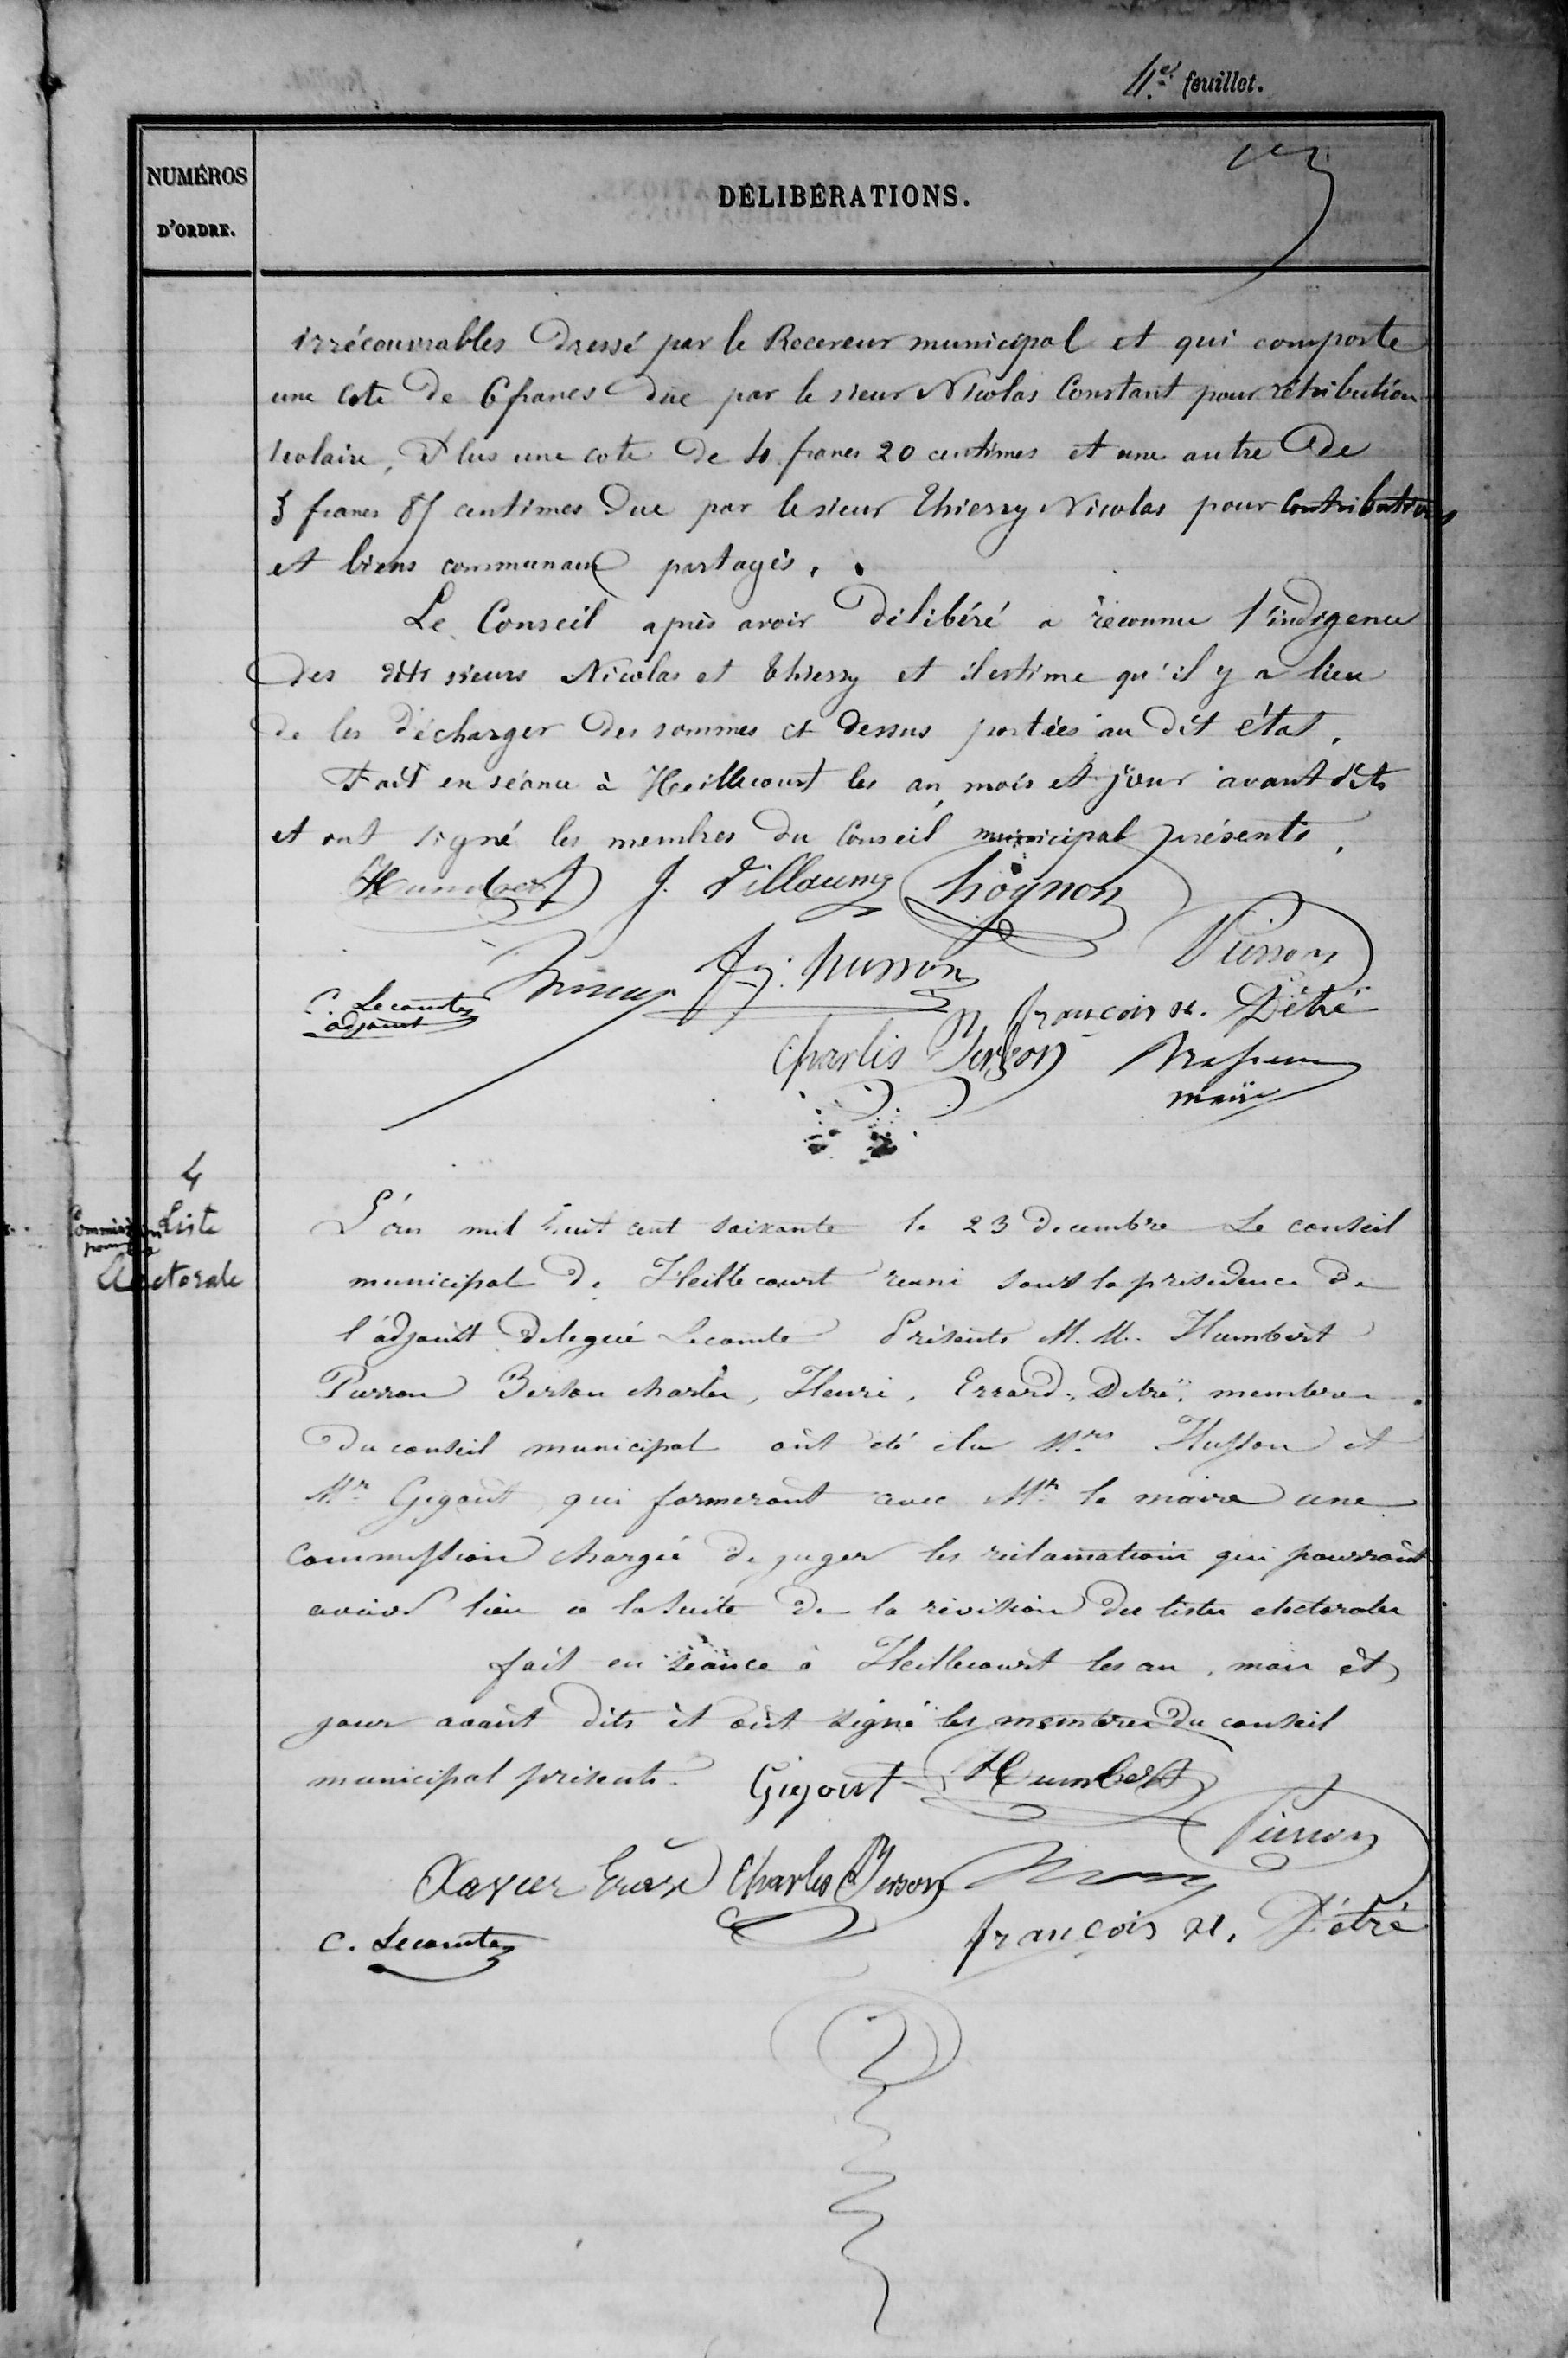 4e feuillet.
NUMÉROS
D'ORDRE.
DÉLIBÉRATIONS.
irrécouvrables dressé par le Receveur municipal et qui comporte
une cote de 6 francs due par le sieur Nicolas Constant pour rétribution
scolaire, Plus une cote de 4 francs 20 centimes et une autre de
centimes due par le sieur Thierry Nicolas pour Contributions
et biens communaux partagés.
Le Conseil après avoir délibéré a reconnu l'indigence
des dits sieurs Nicolas et Thierry et il estime qu'il y a lieu
de les décharger des sommes ci dessus portées au dit état.
Fait en séance à Heillecourt les an, mois et jour avant dits
et ont signé les membres du Conseil municipal présents.
Humbert J. Villaume hognon
husson Pierson
C. Lecomte
adjoint
françois n. Détré
Charles Berson
maire
4
Commission Liste
pour la
électorale
L'an mil huit cent soixante le 23 decembre Le conseil
municipal de Heillecourt reuni sous la présidence de
l'adjoint delegué Lecomte Présents M. M. Humbert
Pierron Berson charles, Henri, Errard, Detré, membres
du conseil municipal ont été élu Mrs Husson et
Mr Gigout qui formeront avec Mr le maire une
Commission chargée de juger les réclamations qui pourront
avoir lieu a la suite de la révision des listes electorales
fait en séance à Heillecourt les an, mois et
jour avant dits et ont signé les membres du conseil
municipal présents.
Gigout Humbert
Pierson
Xavier Charles Berson
C. Lecomte
françois n. Détré